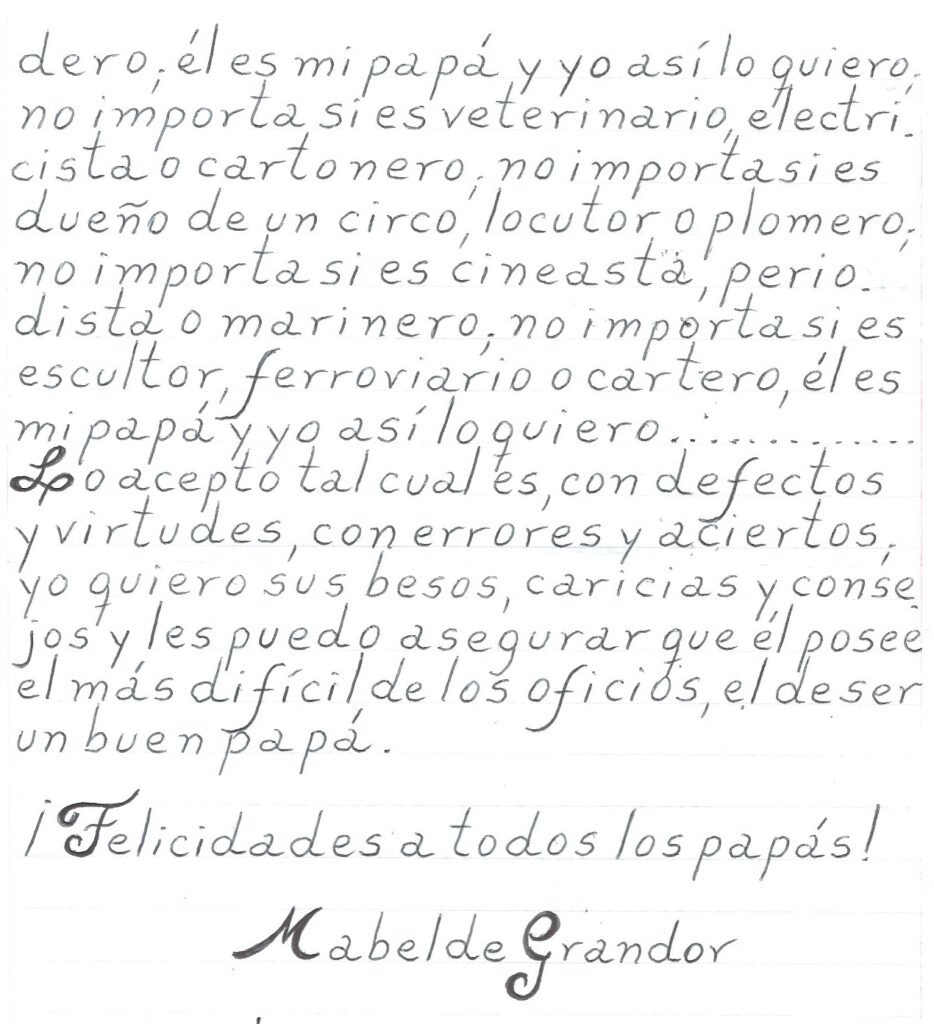 dero; él es mi papá y yo así lo quiero;
no importa si es veterinario, electri-
cista o cartonero; no importa si es
dueño de un circo, locutor o plomero;
no importa si es cineasta, perio-
dista o marinero; no importa si es
escultor, ferroviario o cartero, él es
mi papá y yo así lo quiero..............
Lo acepto tal cual es, con defectos
y virtudes, con errores y aciertos;
yo quiero sus besos, caricias y conse-
jos y les puedo asegurar que él posee
el más difícil de los oficios, el de ser
un buen papá.
¡Felicidades a todos los papás!
Mabel de Grandor